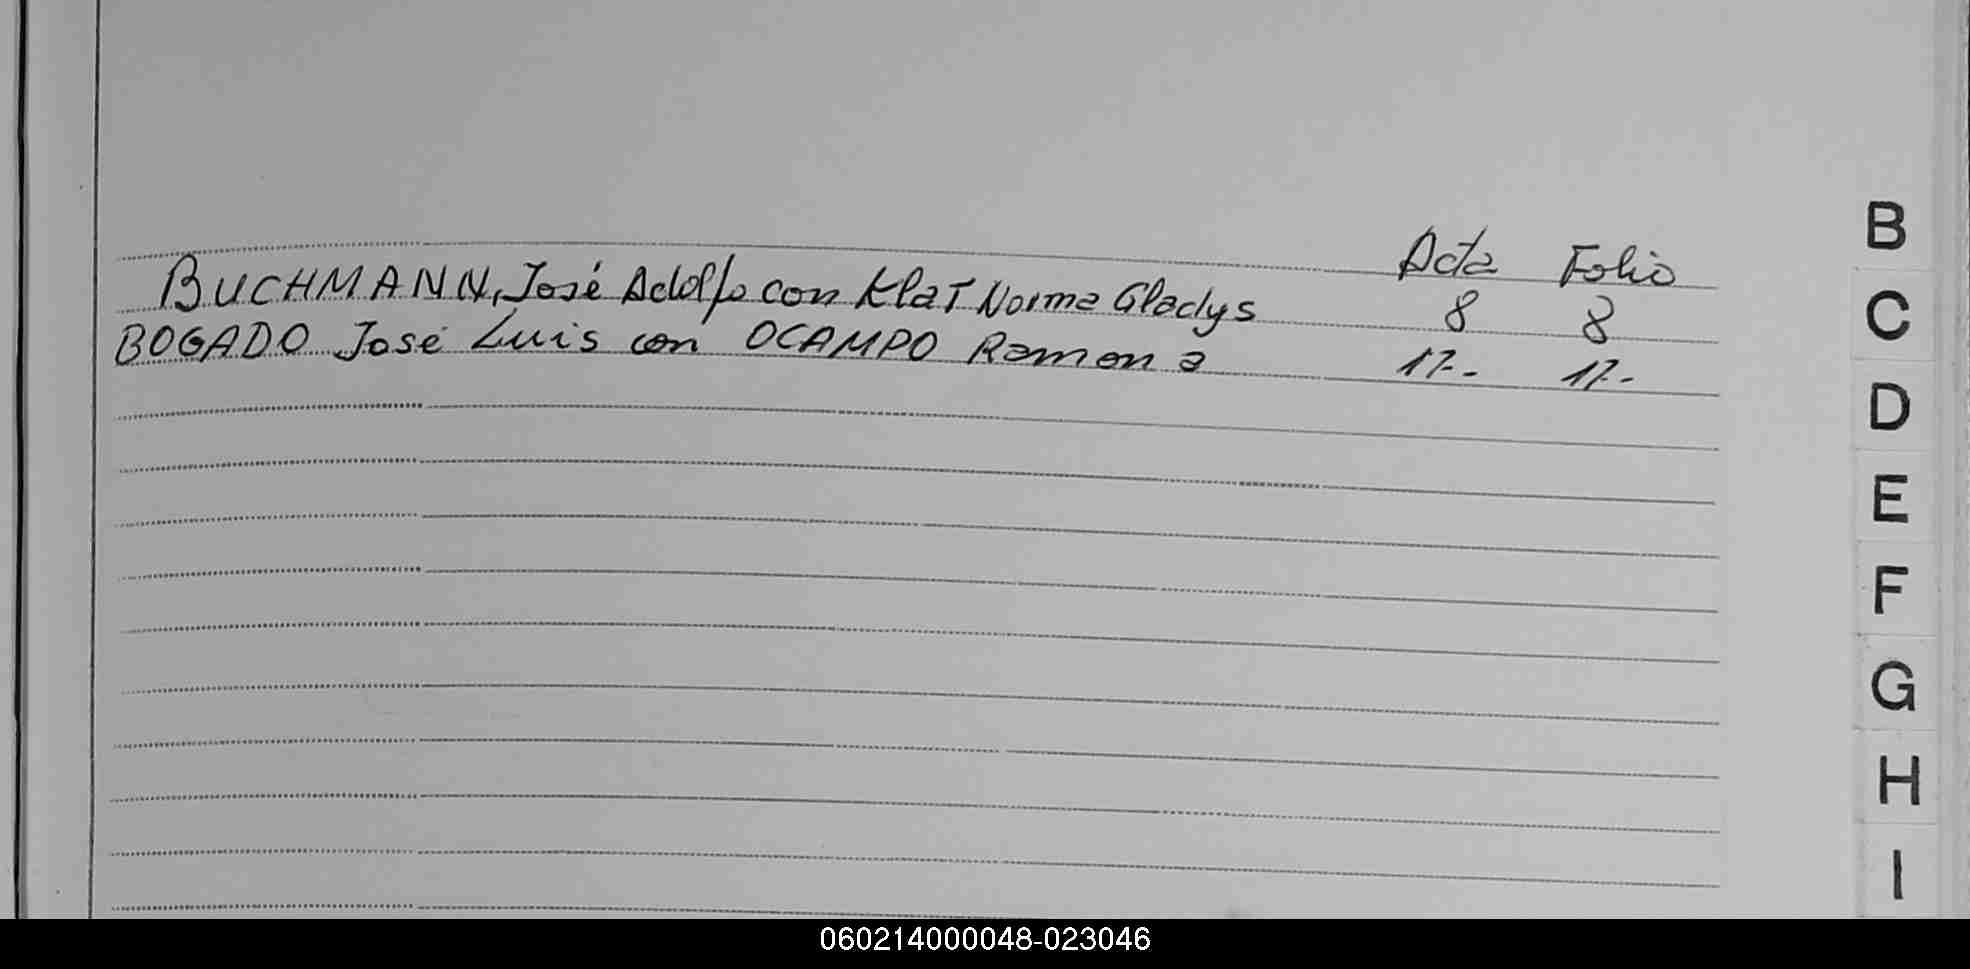 Acta Folio
BUCHMANN, José Adolfo con Klat Norma Gladys 8 8
BOGADO José Luis con OCAMPO Ramona 17.- 17.-
B
C
D
E
F
G
H
I
060214000048-023046